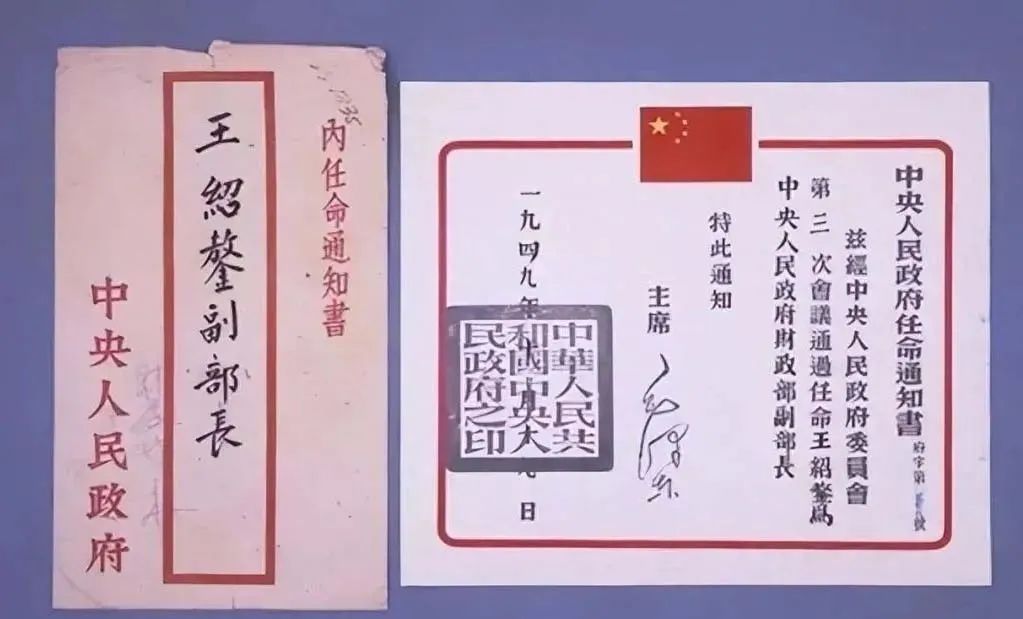 內任命通知書
王紹鏊副部長
中央人民政府
中央人民政府任命通知書
府字第號
茲經中央人民政府委員會
第三次會議通過任命王紹鏊爲
中央人民政府財政部副部長
特此通知
主席 毛澤東
一九四九年十月十九日
中華人民共
和國中央人
民政府之印